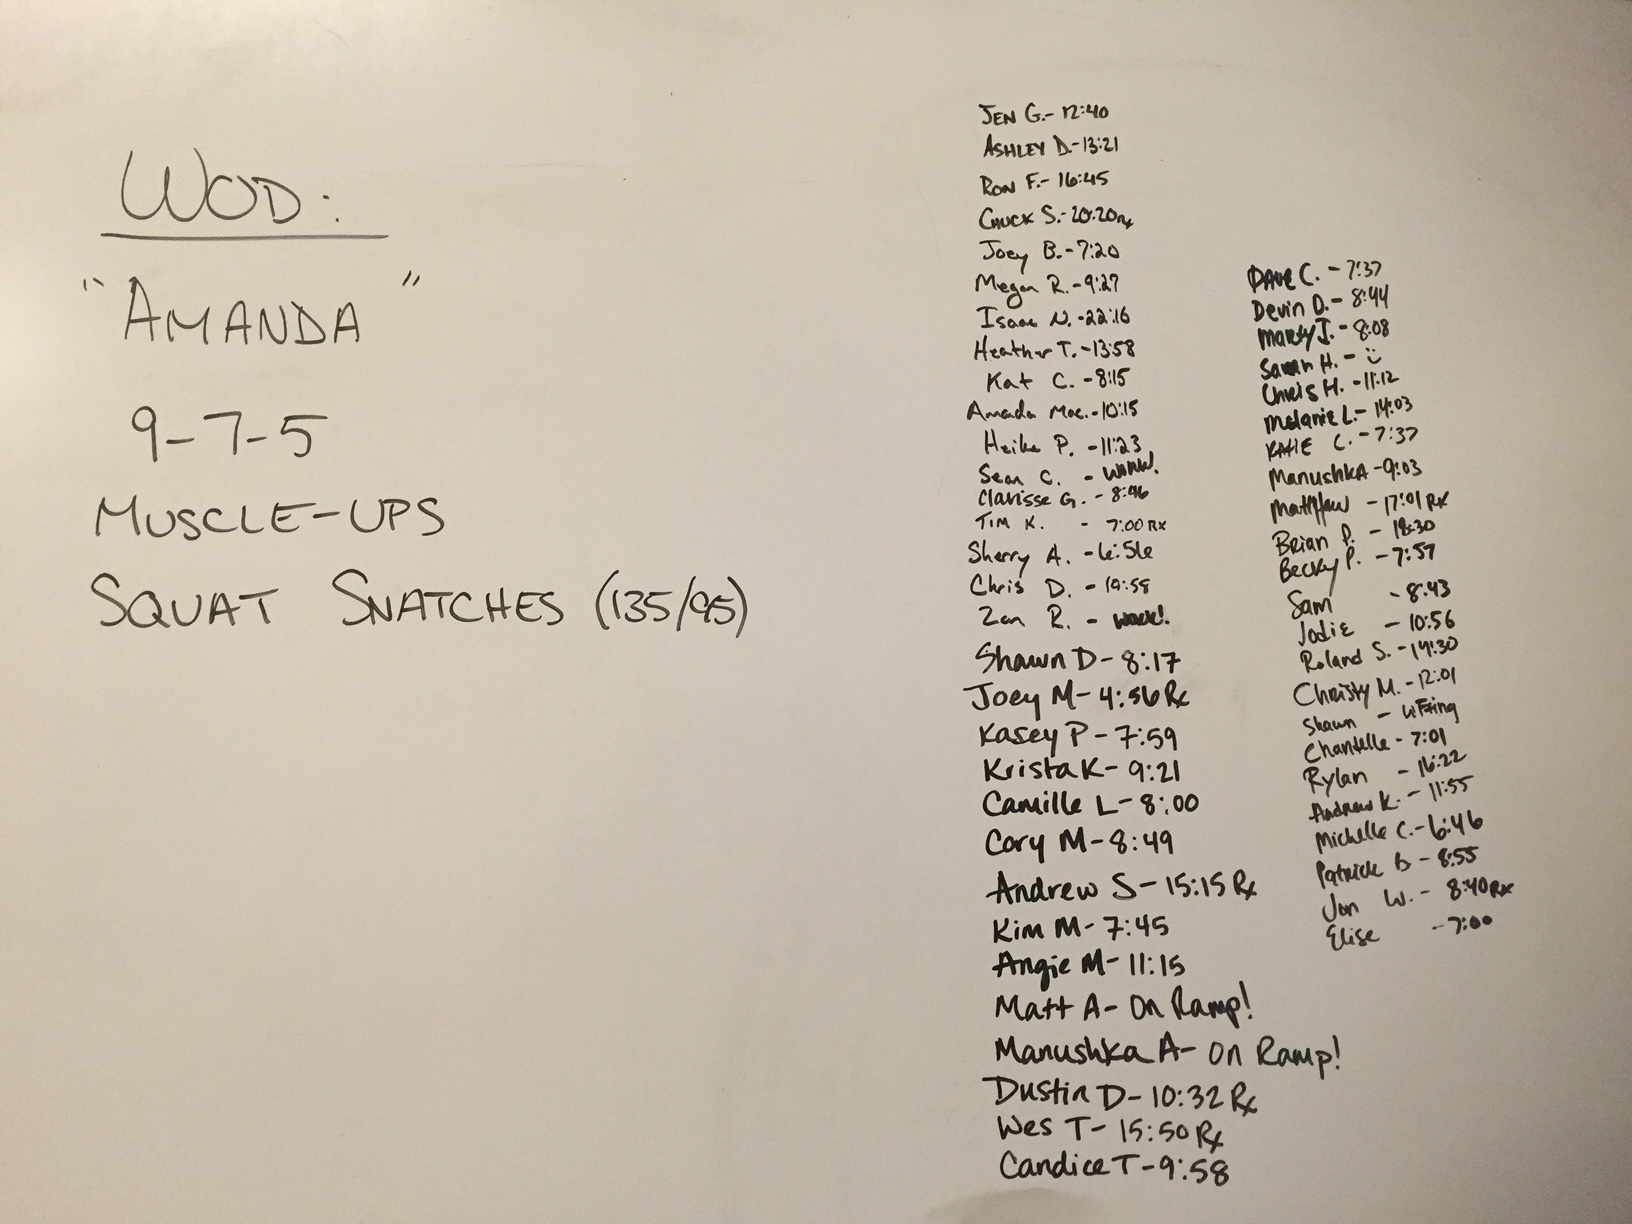 WOD:
"AMANDA"
9-7-5
MUSCLE-UPS
SQUAT SNATCHES (135/95)
JEN G.- 12:40
ASHLEY D.-13:21
RON F.- 16:45
CHUCK S.-20:20 Rx
Joey B.-7:20
Megan R.-9:27
Isaac N.-22:16
Heather T.-13:58
Kat C. -8:15
Amanda Mac.-10:15
Heike P. -11:23
Sean C. - WORK!
Clarisse G. - 8:46
TIM K. - 7:00 Rx
Sherry A. -6:56
Chris D. - 19:58
Zan R. - WORK!
Shawn D- 8:17
Joey M- 4:56 Rx
Kasey P- 7:59
Krista K- 9:21
Camille L- 8:00
Cory M- 8:49
Andrew S- 15:15 Rx
Kim M- 7:45
Angie M- 11:15
Matt A- On Ramp!
Manushka A- On Ramp!
Dustin D- 10:32 Rx
Wes T- 15:50 Rx
Candice T-9:58
DAVE C. - 7:37
Devin D.- 8:44
Marty J. - 8:08
Sarah H. - :)
Chris H. -11:12
Melanie L.- 14:03
KATIE C. - 7:37
ManushkA -9:03
Matthew - 17:01 Rx
Brian P. - 18:30
Becky P. -7:57
Sam - 8:43
Jodie - 10:56
Roland S. -14:30
Christy M. -12:01
Shawn -
Chantelle - 7:01
Rylan - 16:22
Andrew K. - 11:55
Michelle C.-6:46
Patrick B - 8:55
Jon W. - 8:40 Rx
Elise -7:00